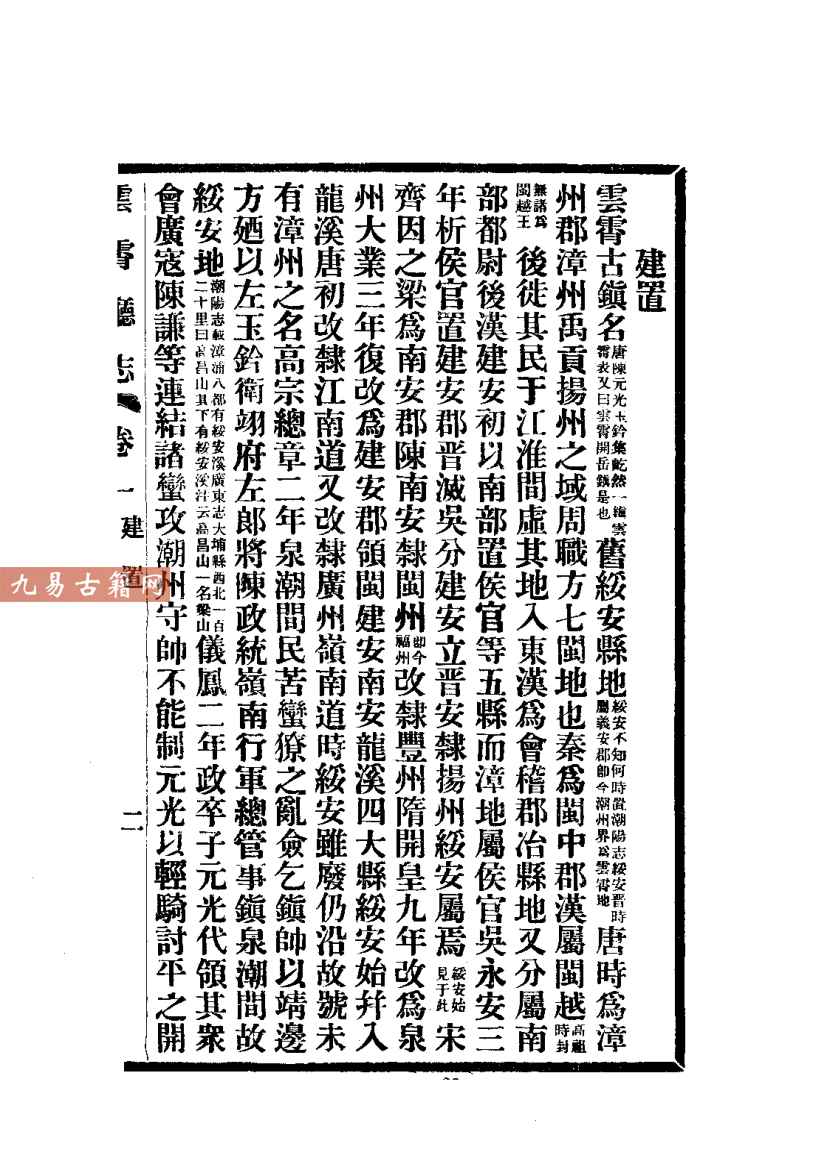 建置
雲霄古鎮名唐陳元光玉鈐集屹然一鎮雲霄表又曰雲霄開岳鎮是也舊綏安縣地綏安不知何時置潮陽志綏安晋時屬義安郡卽今潮州界爲雲霄地唐時爲漳
州郡漳州禹貢揚州之域周職方七閩地也秦爲閩中郡漢屬閩越高祖時封
無諸爲閩越王後徙其民于江淮間虛其地入東漢爲會稽郡冶縣地又分屬南
部都尉後漢建安初以南部置侯官等五縣而漳地屬侯官吳永安三
年析侯官置建安郡晉滅吳分建安立晋安隸揚州綏安屬焉綏安始見于此宋
齊因之梁爲南安郡陳南安隸閩州卽今福州改隸豐州隋開皇九年改爲泉
州大業三年復改爲建安郡領閩建安南安龍溪四大縣綏安始幷入
龍溪唐初改隸江南道又改隸廣州嶺南道時綏安雖廢仍沿故號未
有漳州之名高宗總章二年泉潮間民苦蠻獠之亂僉乞鎮帥以靖邊
方廼以左玉鈐衛翊府左郎將陳政統嶺南行軍總管事鎮泉潮間故
綏安地潮陽志載漳浦八都有綏安溪廣東志大埔縣西北一百二十里曰高昌山其下有綏安溪注云高昌山一名梁山儀鳳二年政卒子元光代領其衆
會廣寇陳謙等連結諸蠻攻潮州守帥不能制元光以輕騎討平之開
雲霄廳志 卷一 建置 二
九易古籍网